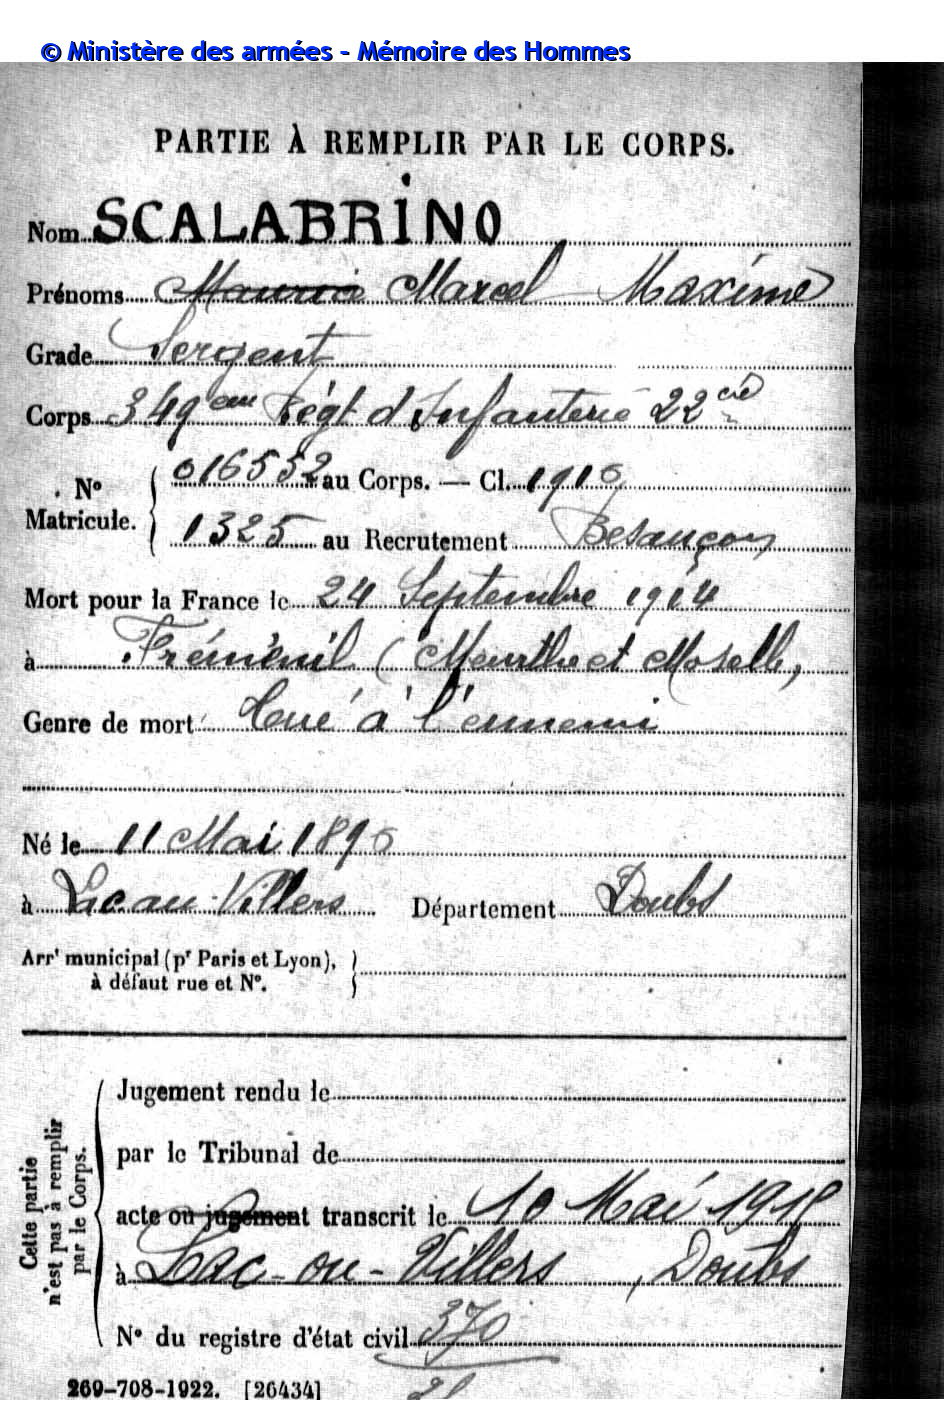 © Ministère des armées - Mémoire des Hommes
PARTIE À REMPLIR PAR LE CORPS.
Nom SCALABRINO
Prénoms Maurice Marcel Maxime
Grade Sergent
Corps 349em Régt d'Infanterie 22e cie
No Matricule. 016552 au Corps. — Cl. 1910
1325 au Recrutement Besançon
Mort pour la France le 24 Septembre 1914
à Fréménil (Meurthe et Moselle)
Genre de mort Tué à l'ennemi
Né le 11 Mai 1890
à Lac au Villers Département Doubs
Arrt municipal (pr Paris et Lyon),
à défaut rue et No.
Cette partie
n'est pas à remplir
par le Corps.
Jugement rendu le
par le Tribunal de
acte ou jugement transcrit le 10 Mai 1915
à Lac-ou-Villers, Doubs
No du registre d'état civil 370
269-708-1922. [26434]